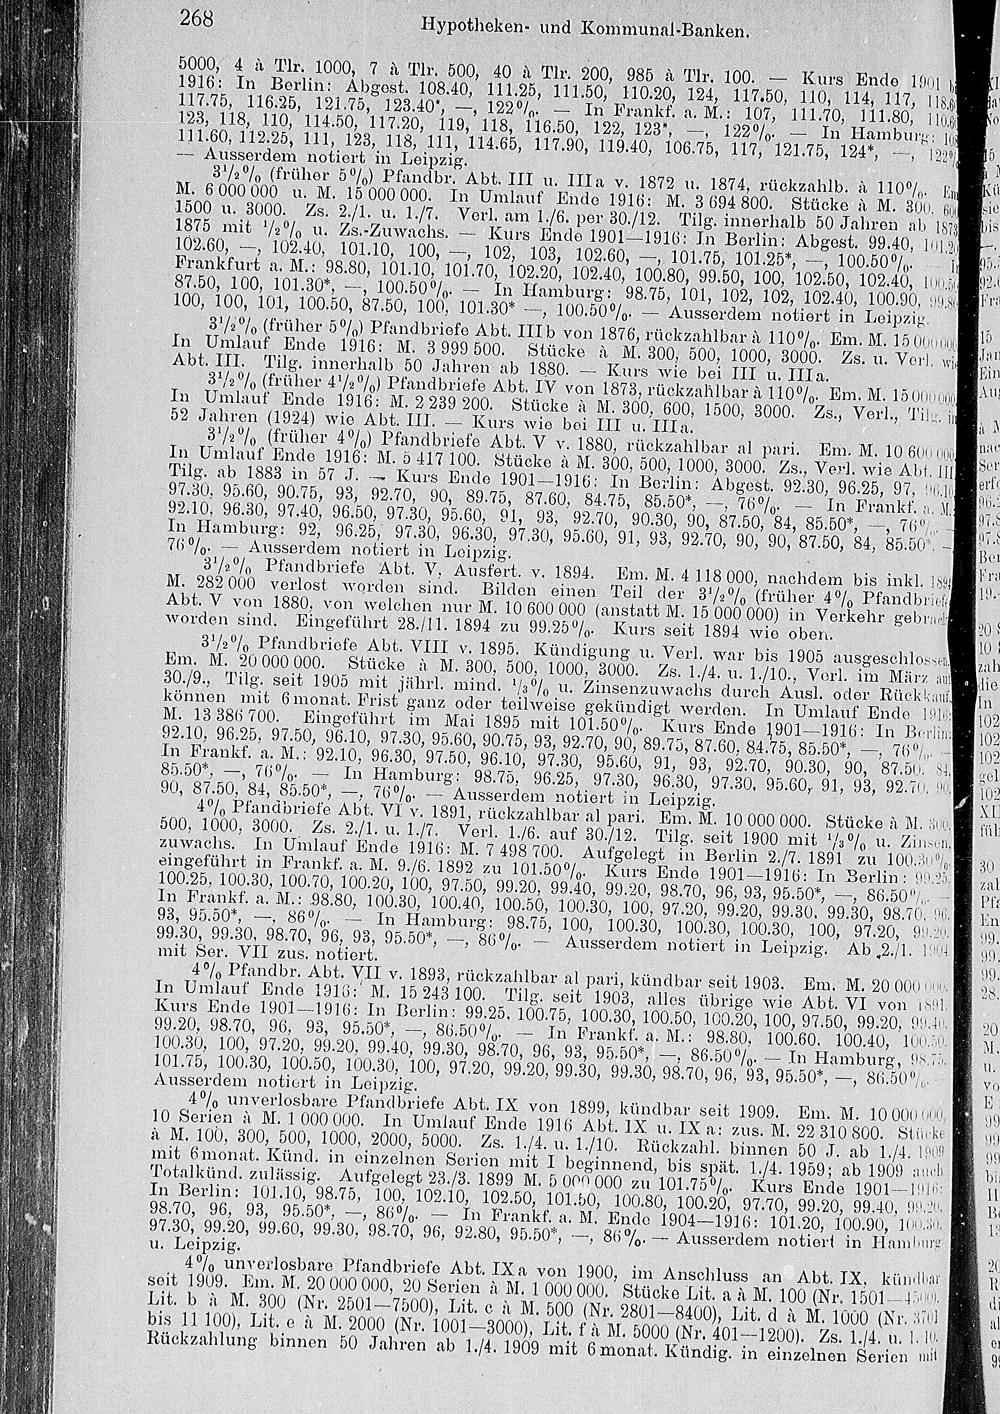 268
Hypotheken- und Kommunal-Banken.
5000, 4 à Tlr. 1000, 7 à Tlr. 500, 40 à Tlr. 200, 985 à Tlr. 100. — Kurs Ende 1901
1916: In Berlin: Abgest. 108.40, 111.25, 111.50, 110.20, 124, 117.50, 110, 114, 117,
117.75, 116.25, 121.75, 123.40*, —, 122%. — In Frankf. a. M.: 107, 111.70, 111.80,
123, 118, 110, 114.50, 117.20, 119, 118, 116.50, 122, 123*, —, 122%. — In Hamburg:
111.60, 112.25, 111, 123, 118, 111, 114.65, 117.90, 119.40, 106.75, 117, 121.75, 124*, —,
— Ausserdem notiert in Leipzig.
3½% (früher 5%) Pfandbr. Abt. III u. IIIa v. 1872 u. 1874, rückzahlb. à 110%.
M. 6 000 000 u. M. 15 000 000. In Umlauf Ende 1916: M. 3 694 800. Stücke à M. 300,
1500 u. 3000. Zs. 2./1. u. 1./7. Verl. am 1./6. per 30./12. Tilg. innerhalb 50 Jahren ab 1873
1875 mit ½% u. Zs.-Zuwachs. — Kurs Ende 1901—1916: In Berlin: Abgest. 99.40,
102.60, —, 102.40, 101.10, 100, —, 102, 103, 102.60, —, 101.75, 101.25*, —, 100.50%. —
Frankfurt a. M.: 98.80, 101.10, 101.70, 102.20, 102.40, 100.80, 99.50, 100, 102.50, 102.40,
87.50, 100, 101.30*, —, 100.50%. — In Hamburg: 98.75, 101, 102, 102, 102.40, 100.90,
100, 100, 101, 100.50, 87.50, 100, 101.30* —, 100.50%. — Ausserdem notiert in Leipzig.
3½% (früher 5%) Pfandbriefe Abt. IIIb von 1876, rückzahlbar à 110%. Em. M.
In Umlauf Ende 1916: M. 3 999 500. Stücke à M. 300, 500, 1000, 3000. Zs. u. Verl. wie
Abt. III. Tilg. innerhalb 50 Jahren ab 1880. — Kurs wie bei III u. IIIa.
3½% (früher 4½%) Pfandbriefe Abt. IV von 1873, rückzahlbar à 110%. Em. M.
In Umlauf Ende 1916: M. 2 239 200. Stücke à M. 300, 600, 1500, 3000. Zs., Verl., Tilg. in
52 Jahren (1924) wie Abt. III. — Kurs wie bei III u. IIIa.
3½% (früher 4%) Pfandbriefe Abt. V v. 1880, rückzahlbar al pari. Em. M. 10 600 000
In Umlauf Ende 1916: M. 5 417 100. Stücke à M. 300, 500, 1000, 3000. Zs., Verl. wie Abt. III
Tilg. ab 1883 in 57 J. — Kurs Ende 1901—1916: In Berlin: Abgest. 92.30, 96.25, 97,
97.30, 95.60, 90.75, 93, 92.70, 90, 89.75, 87.60, 84.75, 85.50*, —, 76%. — In Frankf. a. M.
92.10, 96.30, 97.40, 96.50, 97.30, 95.60, 91, 93, 92.70, 90.30, 90, 87.50, 84, 85.50*, —, 76%
In Hamburg: 92, 96.25, 97.30, 96.30, 97.30, 95.60, 91, 93, 92.70, 90, 90, 87.50, 84, 85.50*, —
76%. — Ausserdem notiert in Leipzig.
3½% Pfandbriefe Abt. V, Ausfert. v. 1894. Em. M. 4 118 000, nachdem bis inkl.
M. 282 000 verlost worden sind. Bilden einen Teil der 3½% (früher 4% Pfandbriefe
Abt. V von 1880, von welchen nur M. 10 600 000 (anstatt M. 15 000 000) in Verkehr gebracht
worden sind. Eingeführt 28./11. 1894 zu 99.25%. Kurs seit 1894 wie oben.
3½% Pfandbriefe Abt. VIII v. 1895. Kündigung u. Verl. war bis 1905 ausgeschlossen.
Em. M. 20 000 000. Stücke à M. 300, 500, 1000, 3000. Zs. 1./4. u. 1./10., Verl. im März auf
30./9., Tilg. seit 1905 mit jährl. mind. ⅓% u. Zinsenzuwachs durch Ausl. oder Rückkauf,
können mit 6monat. Frist ganz oder teilweise gekündigt werden. In Umlauf Ende 1916:
M. 13 386 700. Eingeführt im Mai 1895 mit 101.50%. Kurs Ende 1901—1916: In Berlin:
92.10, 96.25, 97.50, 96.10, 97.30, 95.60, 90.75, 93, 92.70, 90, 89.75, 87.60, 84.75, 85.50*, —, 76%. —
In Frankf. a. M.: 92.10, 96.30, 97.50, 96.10, 97.30, 95.60, 91, 93, 92.70, 90.30, 90, 87.50, 84,
85.50*, —, 76%. — In Hamburg: 98.75, 96.25, 97.30, 96.30, 97.30, 95.60, 91, 93, 92.70, 90,
90, 87.50, 84, 85.50*, —, 76%. — Ausserdem notiert in Leipzig.
4% Pfandbriefe Abt. VI v. 1891, rückzahlbar al pari. Em. M. 10 000 000. Stücke à M. 300,
500, 1000, 3000. Zs. 2./1. u. 1./7. Verl. 1./6. auf 30./12. Tilg. seit 1900 mit ⅓% u. Zinsen-
zuwachs. In Umlauf Ende 1916: M. 7 498 700. Aufgelegt in Berlin 2./7. 1891 zu 100.30%,
eingeführt in Frankf. a. M. 9./6. 1892 zu 101.50%. Kurs Ende 1901—1916: In Berlin: 99.25,
100.25, 100.30, 100.70, 100.20, 100, 97.50, 99.20, 99.40, 99.20, 98.70, 96, 93, 95.50*, —, 86.50%. —
In Frankf. a. M.: 98.80, 100.30, 100.40, 100.50, 100.30, 100, 97.20, 99.20, 99.30, 99.30, 98.70, 96,
93, 95.50*, —, 86%. — In Hamburg: 98.75, 100, 100.30, 100.30, 100.30, 100, 97.20, 99.20,
99.30, 99.30, 98.70, 96, 93, 95.50*, —, 86%. — Ausserdem notiert in Leipzig. Ab 2./1. 1904
mit Ser. VII zus. notiert.
4% Pfandbr. Abt. VII v. 1893, rückzahlbar al pari, kündbar seit 1903. Em. M. 20 000 000.
In Umlauf Ende 1916: M. 15 243 100. Tilg. seit 1903, alles übrige wie Abt. VI von 1891.
Kurs Ende 1901—1916: In Berlin: 99.25, 100.75, 100.30, 100.50, 100.20, 100, 97.50, 99.20, 99.40,
99.20, 98.70, 96, 93, 95.50*, —, 86.50%. — In Frankf. a. M.: 98.80, 100.60, 100.40, 100.50,
100.30, 100, 97.20, 99.20, 99.40, 99.30, 98.70, 96, 93, 95.50*, —, 86.50%. — In Hamburg, 98.75,
101.75, 100.30, 100.50, 100.30, 100, 97.20, 99.20, 99.30, 99.30, 98.70, 96, 93, 95.50*, —, 86.50%. —
Ausserdem notiert in Leipzig.
4% unverlosbare Pfandbriefe Abt. IX von 1899, kündbar seit 1909. Em. M. 10 000 000,
10 Serien à M. 1 000 000. In Umlauf Ende 1916 Abt. IX u. IXa: zus. M. 22 310 800. Stücke
à M. 100, 300, 500, 1000, 2000, 5000. Zs. 1./4. u. 1./10. Rückzahl. binnen 50 J. ab 1./4. 1909
mit 6monat. Künd. in einzelnen Serien mit I beginnend, bis spät. 1./4. 1959; ab 1909 auch
Totalkünd. zulässig. Aufgelegt 23./3. 1899 M. 5 000 000 zu 101.75%. Kurs Ende 1901—1916:
In Berlin: 101.10, 98.75, 100, 102.10, 102.50, 101.50, 100.80, 100.20, 97.70, 99.20, 99.40, 99.20,
98.70, 96, 93, 95.50*, —, 86%. — In Frankf. a. M. Ende 1904—1916: 101.20, 100.90, 100.30,
97.30, 99.20, 99.60, 99.30, 98.70, 96, 92.80, 95.50*, —, 86%. — Ausserdem notiert in Hamburg
u. Leipzig.
4% unverlosbare Pfandbriefe Abt. IXa von 1900, im Anschluss an Abt. IX, kündbar
seit 1909. Em. M. 20 000 000, 20 Serien à M. 1 000 000. Stücke Lit. a à M. 100 (Nr. 1501—4500),
Lit. b à M. 300 (Nr. 2501—7500), Lit. c à M. 500 (Nr. 2801—8400), Lit. d à M. 1000 (Nr. 3701
bis 11 100), Lit. e à M. 2000 (Nr. 1001—3000), Lit. f à M. 5000 (Nr. 401—1200). Zs. 1./4. u. 1./10.
Rückzahlung binnen 50 Jahren ab 1./4. 1909 mit 6monat. Kündig. in einzelnen Serien mit